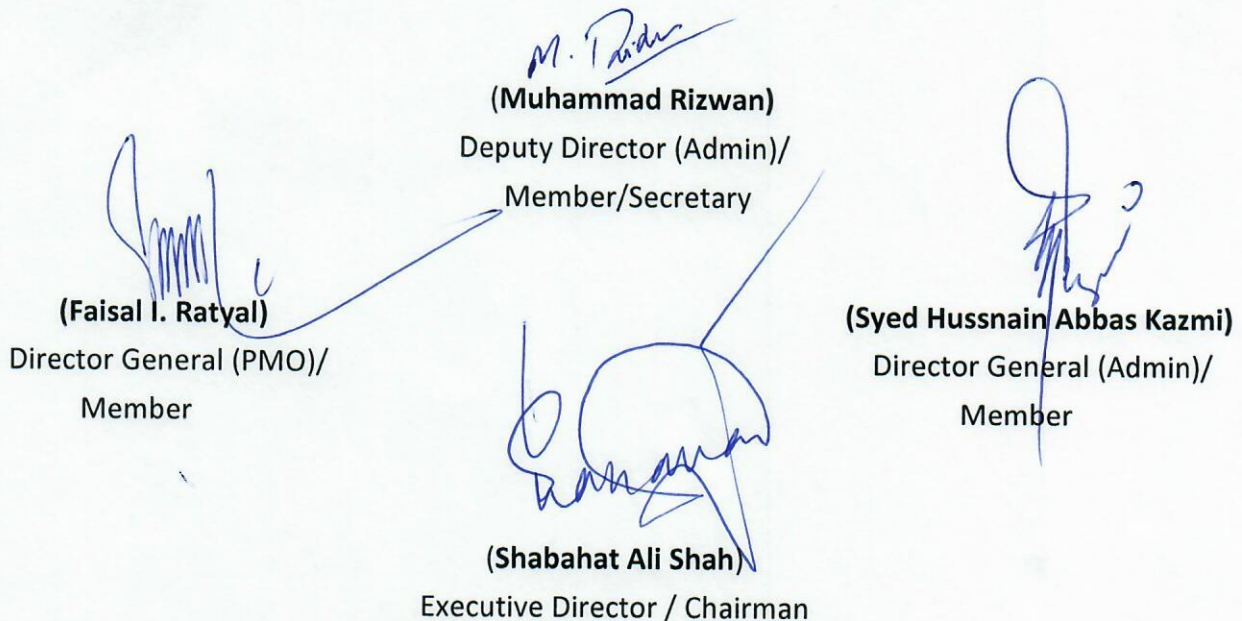 (Muhammad Rizwan)
Deputy Director (Admin)/
Member/Secretary
(Faisal I. Ratyal)
Director General (PMO)/
Member
(Syed Hussnain Abbas Kazmi)
Director General (Admin)/
Member
(Shabahat Ali Shah)
Executive Director / Chairman